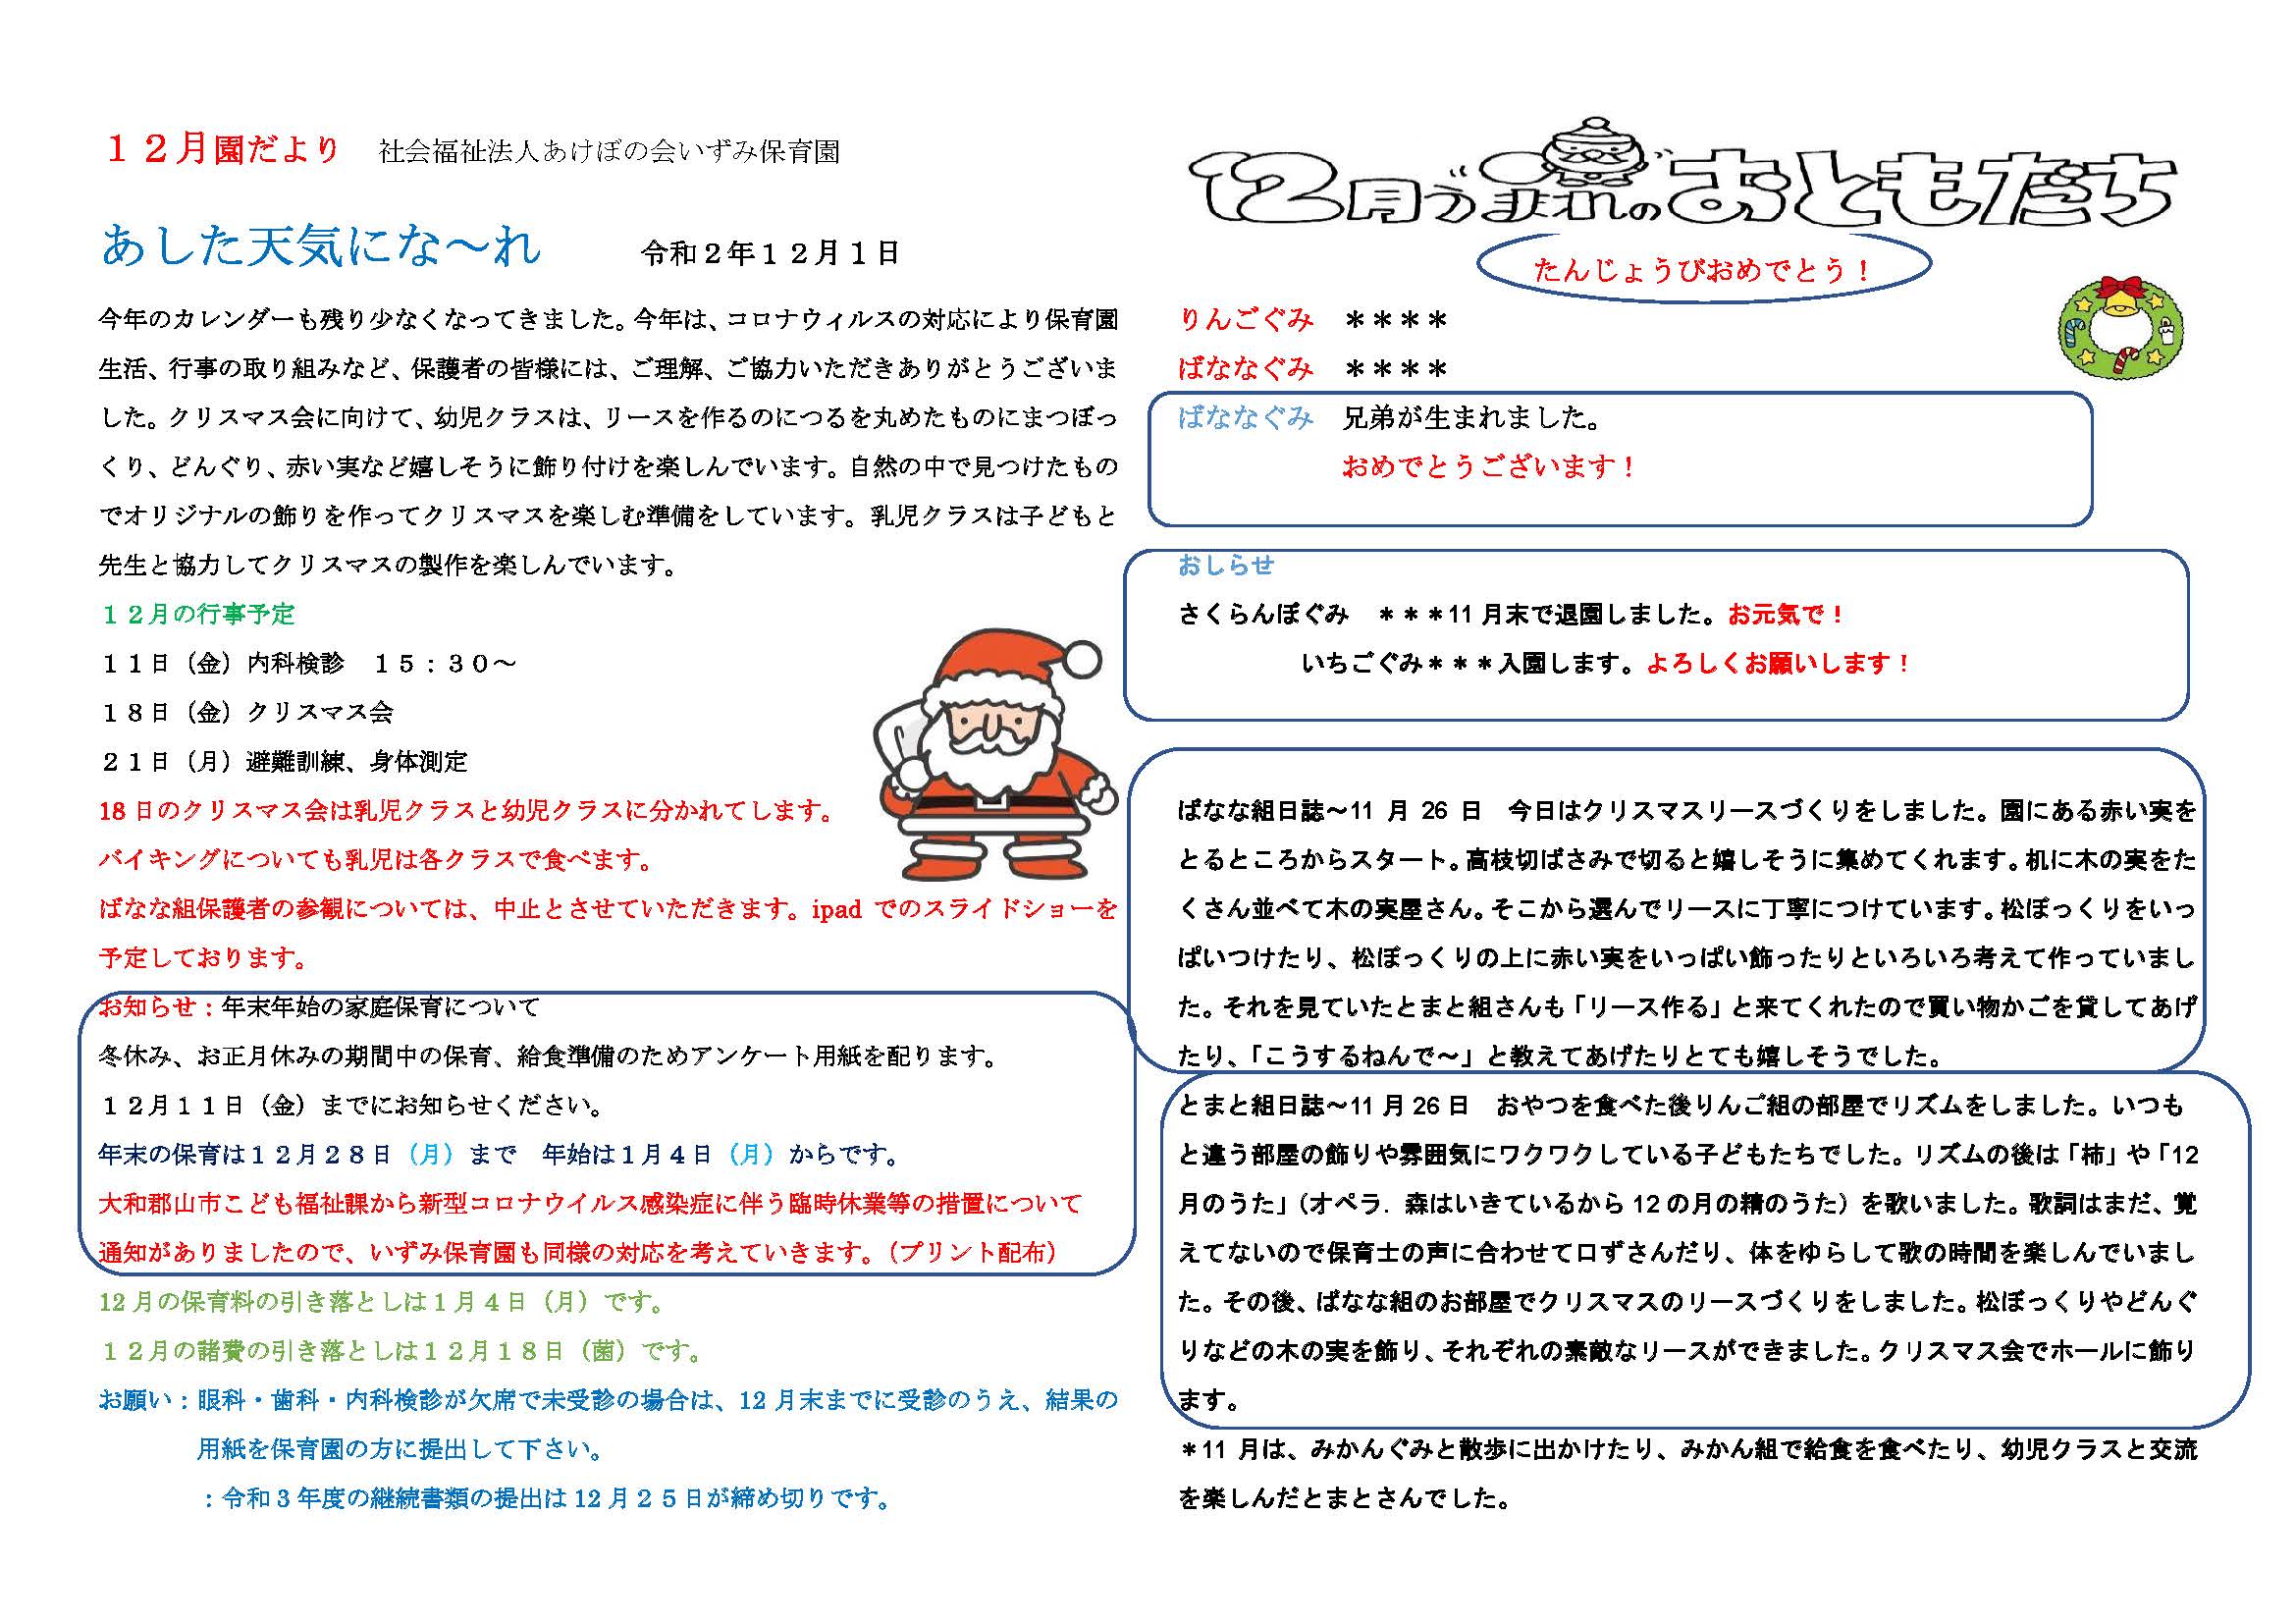 １２月園だより　社会福祉法人あけぼの会いずみ保育園
あした天気にな～れ　令和２年１２月１日
今年のカレンダーも残り少なくなってきました。今年は、コロナウィルスの対応により保育園
生活、行事の取り組みなど、保護者の皆様には、ご理解、ご協力いただきありがとうございま
した。クリスマス会に向けて、幼児クラスは、リースを作るのにつるを丸めたものにまつぼっ
くり、どんぐり、赤い実など嬉しそうに飾り付けを楽しんでいます。自然の中で見つけたもの
でオリジナルの飾りを作ってクリスマスを楽しむ準備をしています。乳児クラスは子どもと
先生と協力してクリスマスの製作を楽しんでいます。
１２月の行事予定
１１日（金）内科検診　１５：３０～
１８日（金）クリスマス会
２１日（月）避難訓練、身体測定
18 日のクリスマス会は乳児クラスと幼児クラスに分かれてします。
バイキングについても乳児は各クラスで食べます。
ばなな組保護者の参観については、中止とさせていただきます。ipad でのスライドショーを
予定しております。
お知らせ：年末年始の家庭保育について
冬休み、お正月休みの期間中の保育、給食準備のためアンケート用紙を配ります。
１２月１１日（金）までにお知らせください。
年末の保育は１２月２８日（月）まで　年始は１月４日（月）からです。
大和郡山市こども福祉課から新型コロナウイルス感染症に伴う臨時休業等の措置について
通知がありましたので、いずみ保育園も同様の対応を考えていきます。（プリント配布）
12 月の保育料の引き落としは１月４日（月）です。
１２月の諸費の引き落としは１２月１８日（菌）です。
お願い：眼科・歯科・内科検診が欠席で未受診の場合は、12 月末までに受診のうえ、結果の
用紙を保育園の方に提出して下さい。
：令和３年度の継続書類の提出は 12 月２５日が締め切りです。
12月うまれのおともだち
たんじょうびおめでとう！
りんごぐみ　＊＊＊＊
ばななぐみ　＊＊＊＊
ばななぐみ　兄弟が生まれました。
おめでとうございます！
おしらせ
さくらんぼぐみ　＊＊＊11 月末で退園しました。お元気で！
いちごぐみ＊＊＊入園します。よろしくお願いします！
ばなな組日誌～11 月 26 日　今日はクリスマスリースづくりをしました。園にある赤い実を
とるところからスタート。高枝切ばさみで切ると嬉しそうに集めてくれます。机に木の実をた
くさん並べて木の実屋さん。そこから選んでリースに丁寧につけています。松ぼっくりをいっ
ぱいつけたり、松ぼっくりの上に赤い実をいっぱい飾ったりといろいろ考えて作っていまし
た。それを見ていたとまと組さんも「リース作る」と来てくれたので買い物かごを貸してあげ
たり、「こうするねんで～」と教えてあげたりとても嬉しそうでした。
とまと組日誌～11 月 26 日　おやつを食べた後りんご組の部屋でリズムをしました。いつも
と違う部屋の飾りや雰囲気にワクワクしている子どもたちでした。リズムの後は「柿」や「12
月のうた」（オペラ．森はいきているから 12 の月の精のうた）を歌いました。歌詞はまだ、覚
えてないので保育士の声に合わせて口ずさんだり、体をゆらして歌の時間を楽しんでいまし
た。その後、ばなな組のお部屋でクリスマスのリースづくりをしました。松ぼっくりやどんぐ
りなどの木の実を飾り、それぞれの素敵なリースができました。クリスマス会でホールに飾り
ます。
＊11 月は、みかんぐみと散歩に出かけたり、みかん組で給食を食べたり、幼児クラスと交流
を楽しんだとまとさんでした。